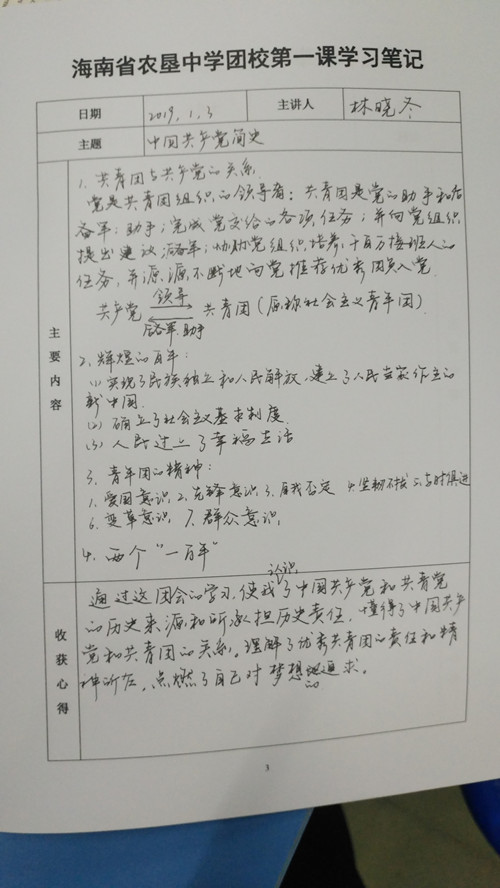 海南省农垦中学团校第一课学习笔记
日期 2019.1.3 主讲人 林晓冬
主题 中国共产党简史
主要内容
1. 共青团与共产党的关系.
党是共青团组织的领导者；共青团是党的助手和后
备军；助手；完成党交给的各项任务；并向党组织
提出建议 后备军；协助党组织培养千百万接班人的
任务，并源源不断地向党推荐优秀团员入党.
共产党 领导 共青团（原称社会主义青年团）
后备军.助手
2. 辉煌的百年：
(1) 实现了民族独立和人民解放，建立了人民当家作主的
新中国.
(2) 确立了社会主义基本制度.
(3) 人民过上了幸福生活
3. 青年团的精神：
1. 爱国意识 2. 先锋意识 3. 自我否定 4. 坚韧不拔 5. 与时俱进
6. 变革意识 7. 群众意识.
4. 两个“一百年”
收获心得
认识
通过这团会的学习，使我了中国共产党和共青党
的历史来源和所承担历史责任，懂得了中国共产
党和共青团的关系。理解了优秀共青团的责任和精
神所在，点燃了自己对梦想地追求。
的
3